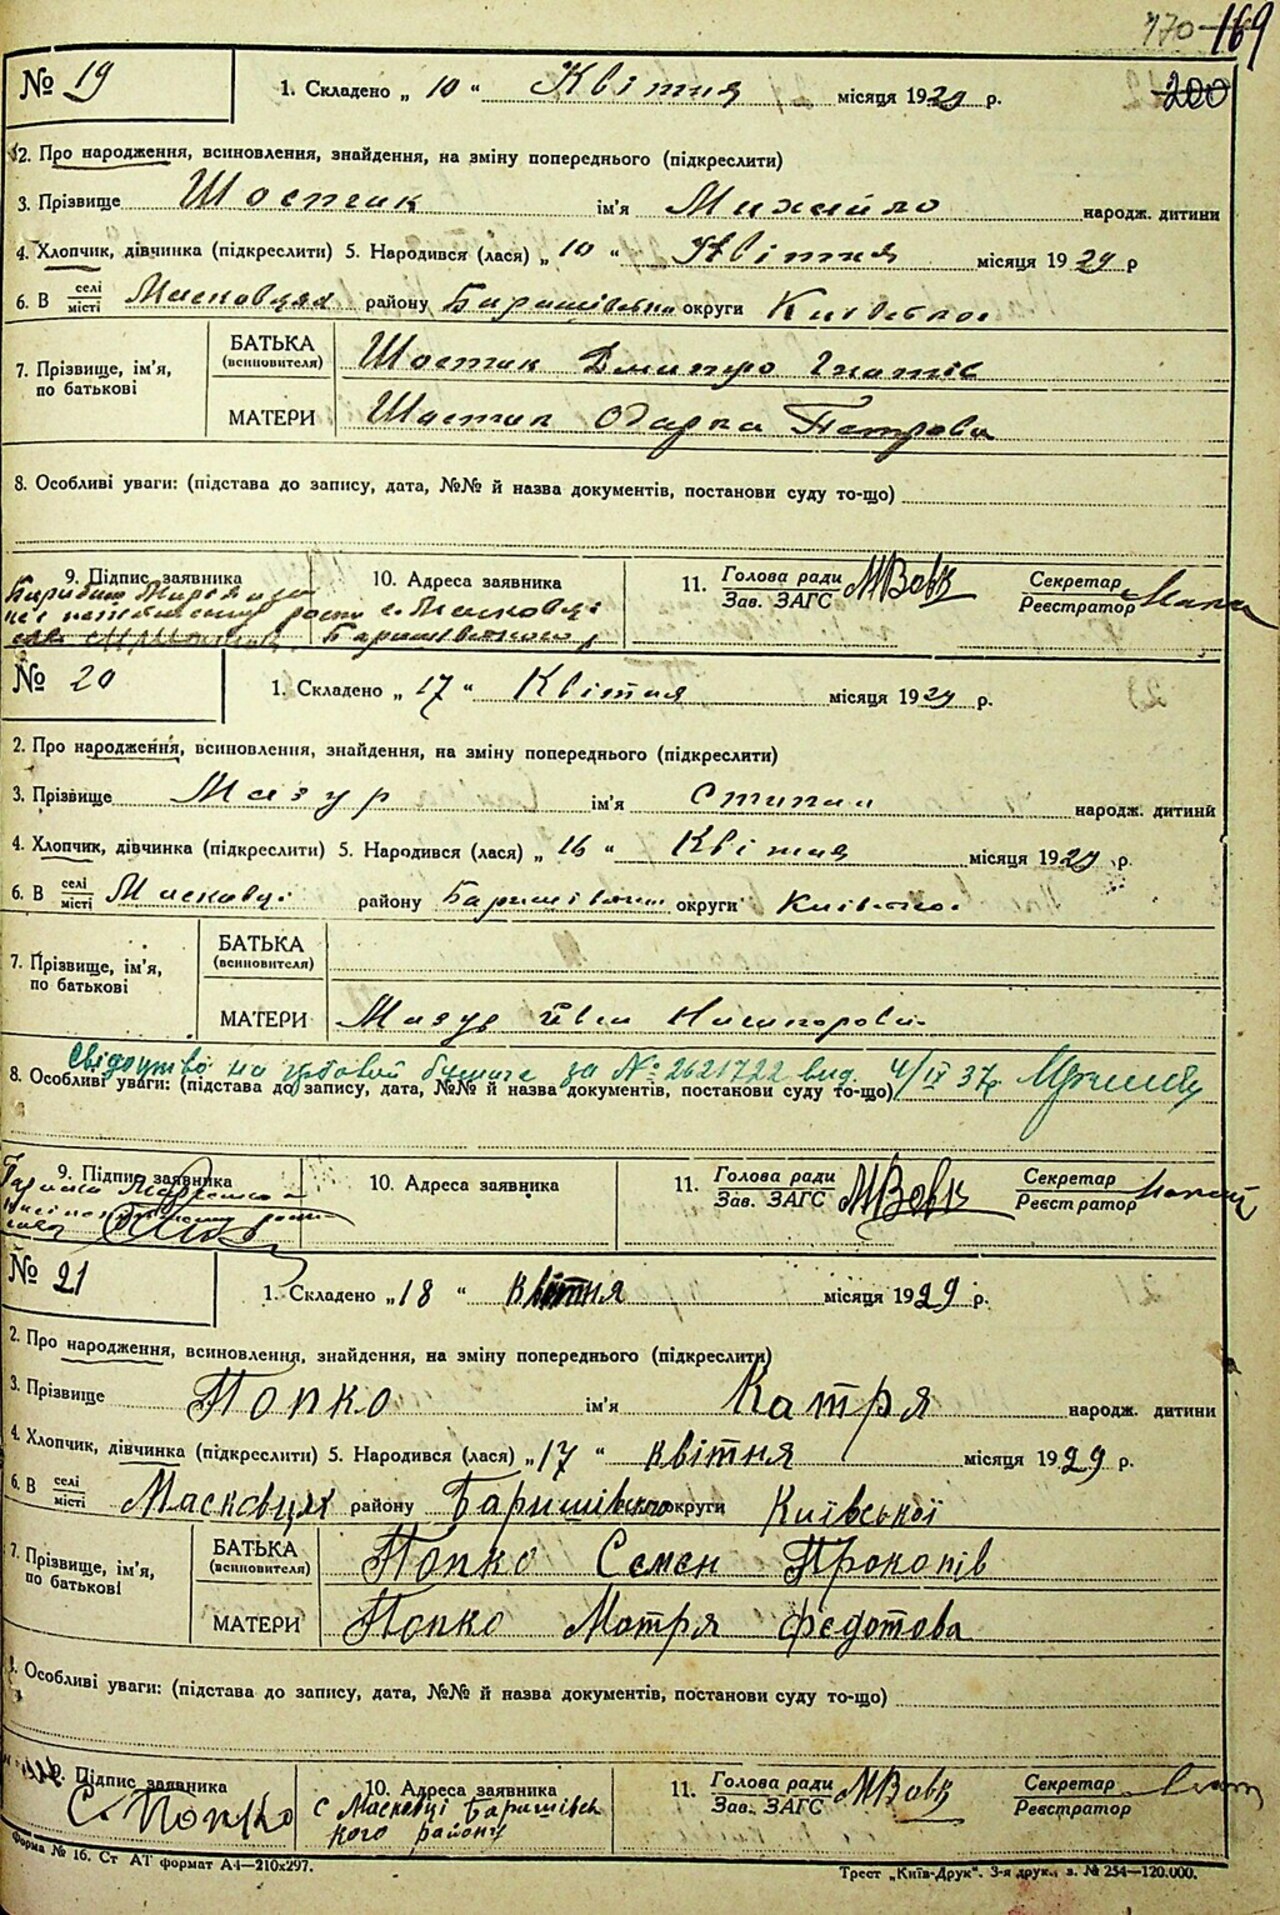 170 169
№ 19
1. Складено „ 10 “ Квітня місяця 1929 р.
200
2. Про народження, всиновлення, знайдення, на зміну попереднього (підкреслити)
3. Прізвище Шостак ім'я Михайло народж. дитини
4. Хлопчик, дівчинка (підкреслити) 5. Народився (лася) „ 10 “ Квітня місяця 1929 р
6. В селі місті Масковцях району Баришівськ округи Київської
7. Прізвище, ім'я, по батькові
БАТЬКА (всиновителя) Шостак Дмитро Гнатів
МАТЕРИ Шостак Одарка Петрова
8. Особливі уваги: (підстава до запису, дата, №№ й назва документів, постанови суду то-що)
9. Підпис заявника
10. Адреса заявника
с. Масковці
Баришівського р
11. Голова ради Зав. ЗАГС МВовк
Секретар Реєстратор
№ 20
1. Складено „ 17 “ Квітня місяця 1929 р.
2. Про народження, всиновлення, знайдення, на зміну попереднього (підкреслити)
3. Прізвище Мазур ім'я Степан народж. дитини
4. Хлопчик, дівчинка (підкреслити) 5. Народився (лася) „ 16 “ Квітня місяця 1929 р.
6. В селі місті Масковці району Баришівськ округи Київської
7. Прізвище, ім'я, по батькові
БАТЬКА (всиновителя)
МАТЕРИ Мазур Ївга Никифорова
Свідоцтво на гербовой бумаге за № 2621722 вид. 4/IV 37р
8. Особливі уваги: (підстава до запису, дата, №№ й назва документів, постанови суду то-що)
9. Підпис заявника
10. Адреса заявника
11. Голова ради Зав. ЗАГС МВовк
Секретар Реєстратор
№ 21
1. Складено „ 18 “ квітня місяця 1929 р.
2. Про народження, всиновлення, знайдення, на зміну попереднього (підкреслити)
3. Прізвище Попко ім'я Катря народж. дитини
4. Хлопчик, дівчинка (підкреслити) 5. Народився (лася) „ 17 “ квітня місяця 1929 р.
6. В селі місті Масковцях району Баришівського округи Київської
7. Прізвище, ім'я, по батькові
БАТЬКА (всиновителя) Попко Семен Прокопів
МАТЕРИ Попко Мотря Федотова
8. Особливі уваги: (підстава до запису, дата, №№ й назва документів, постанови суду то-що)
9. Підпис заявника
С. Попко
10. Адреса заявника
с Масковці Баришівсь
кого району
11. Голова ради Зав. ЗАГС МВовк
Секретар Реєстратор
Форма № 16. Ст АТ формат А4—210х297.
Трест „Київ-Друк“. 3-я друк., з. № 254—120.000.